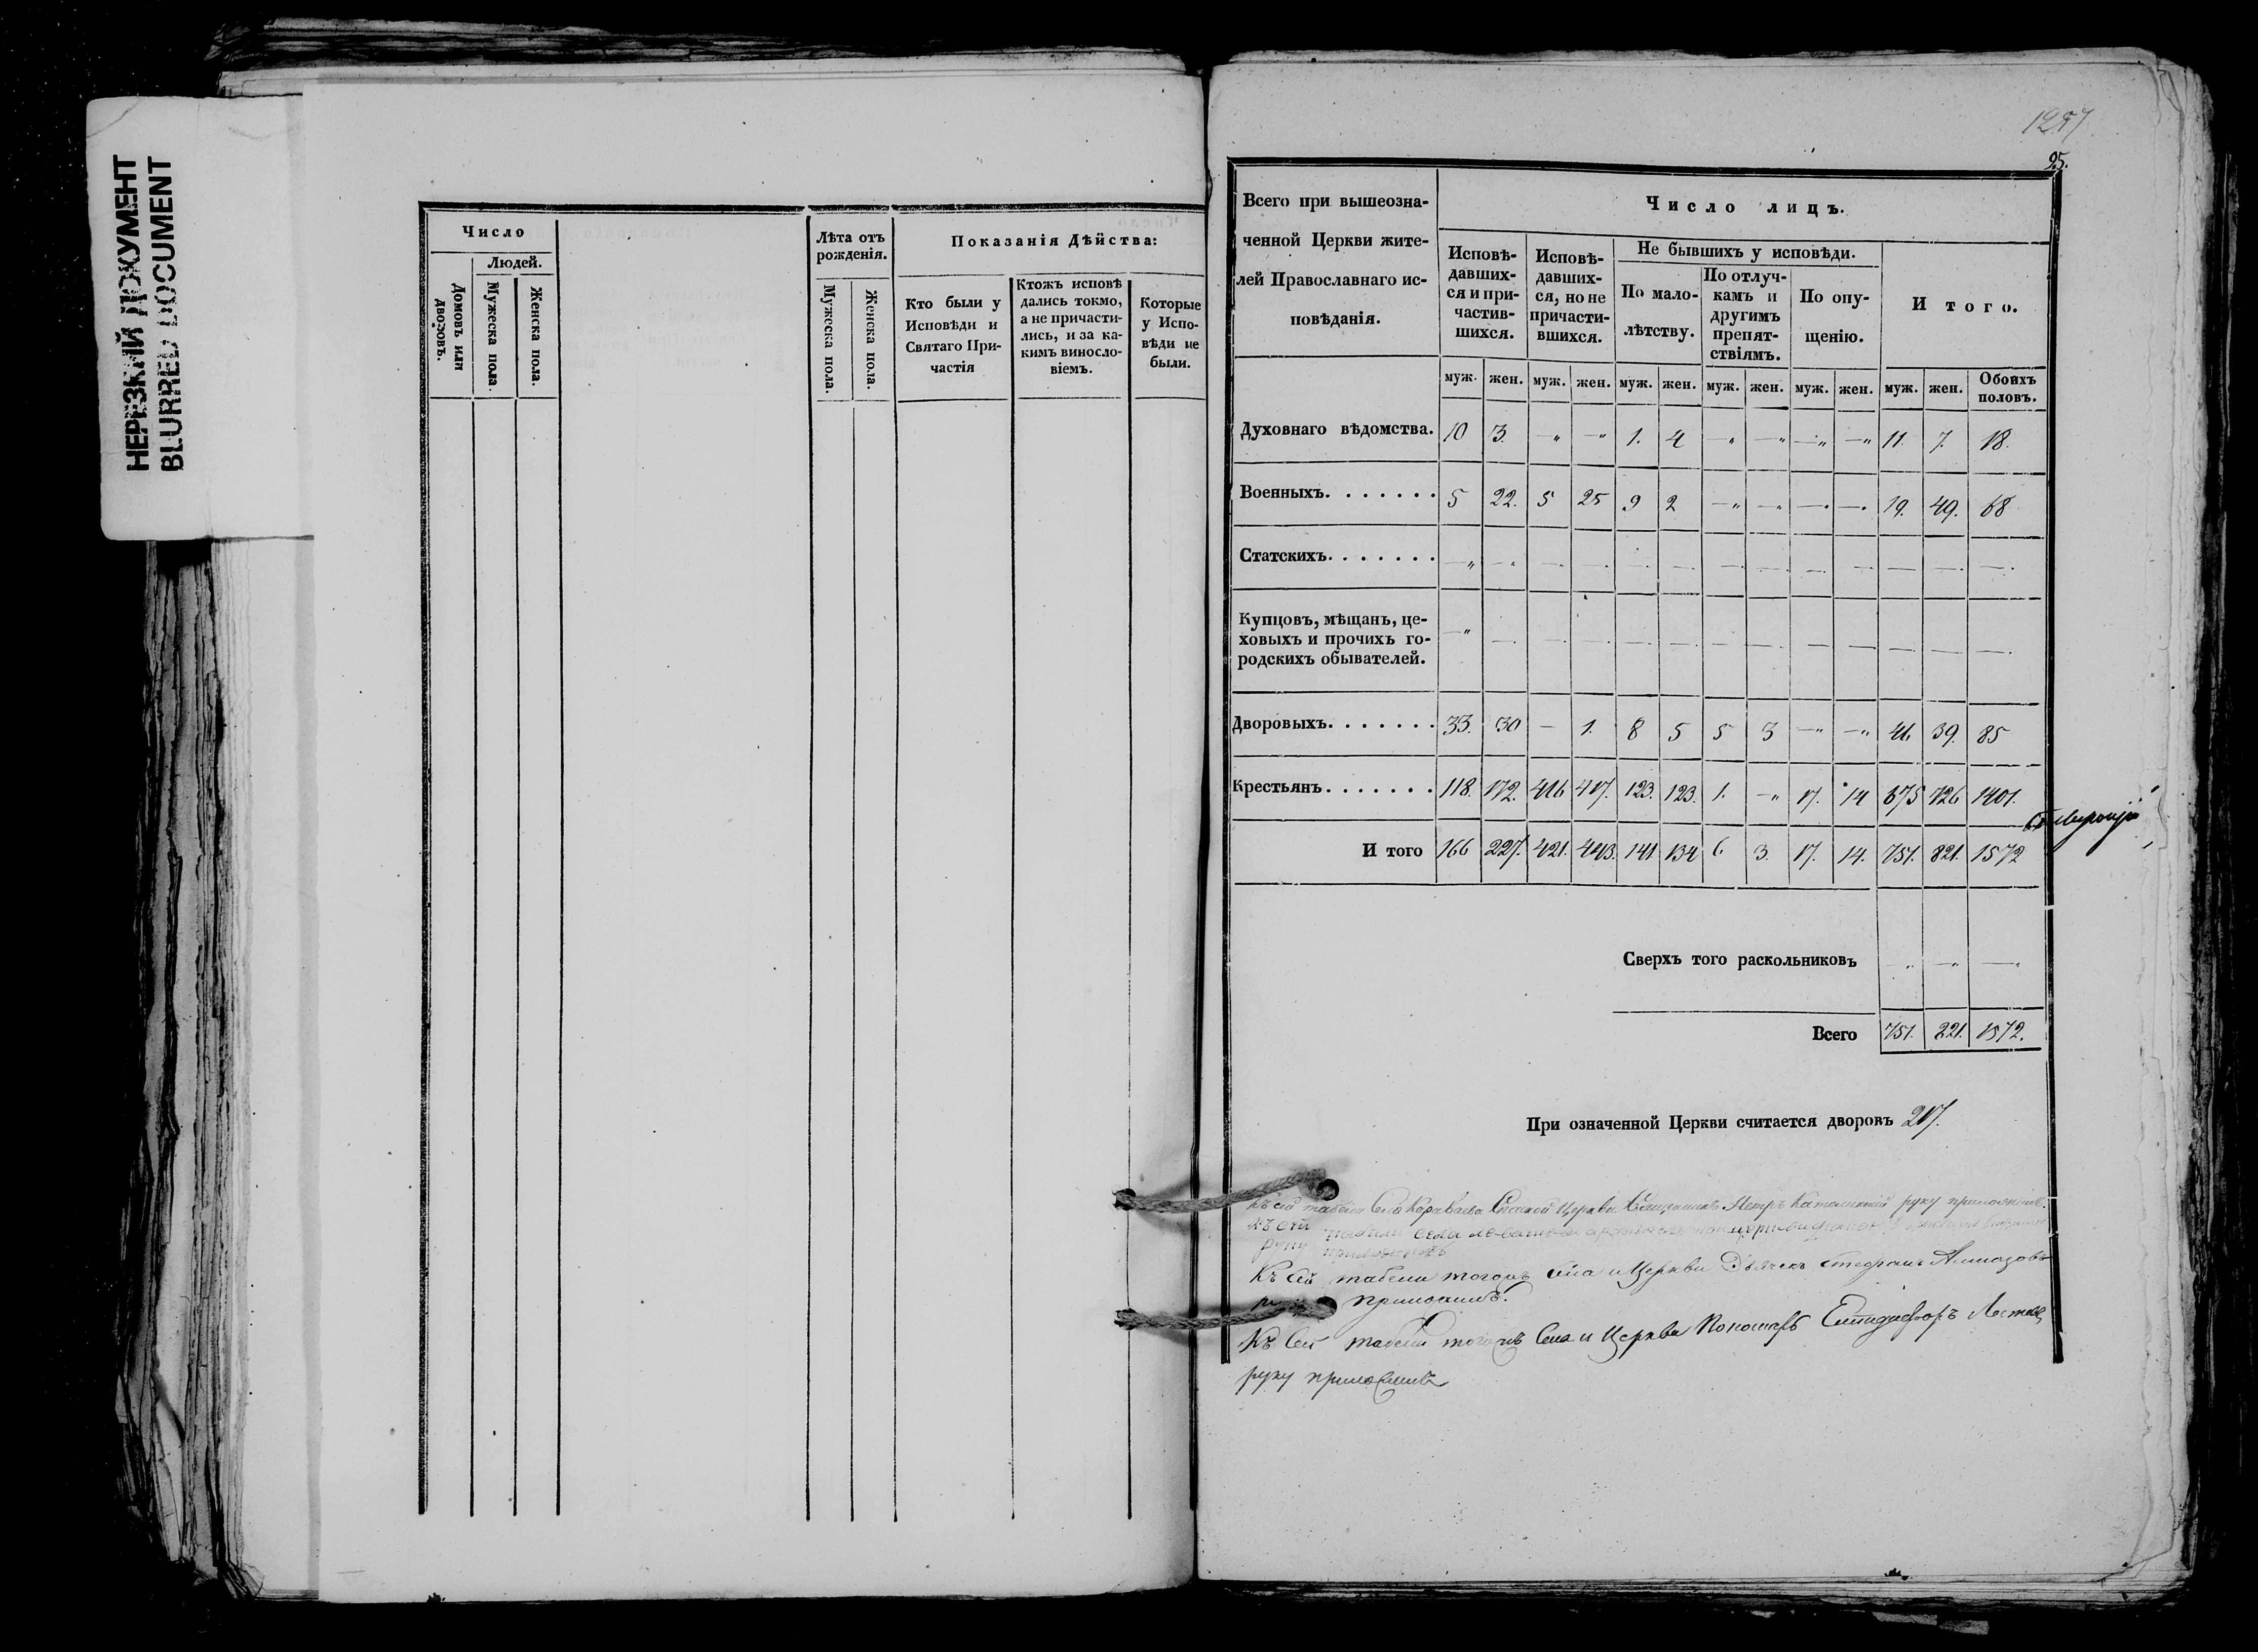 НЕРЕЗКИЙ ДОКУМЕНТ
BLURRED DOCUMENT
Число
Домовъ или дворовъ.
Людей.
Мужеска пола.
Женска пола.
Лѣта отъ рожденія.
Мужеска пола.
Женска пола.
Показанія Дѣйства:
Кто были у
Исповѣди и
Святаго При-
частія
Ктожъ исповѣ
дались токмо,
а не причасти-
лись, и за ка-
кимъ виносло-
віемъ.
Которые
у Испо-
вѣди не
были.
25.
Всего при вышеозна-
ченной Церкви жите-
лей Православнаго ис-
повѣданія.
Число лицъ.
Исповѣ-
давших-
ся и при-
частив-
шихся.
Исповѣ-
давших-
ся, но не
причасти-
вшихся.
Не бывшихъ у исповѣди.
По мало-
лѣтству.
По отлуч-
камъ и
другимъ
препят-
ствіямъ.
По опу-
щенію.
Итого.
муж. жен. муж. жен. муж. жен. муж. жен. муж. жен. муж. жен. Обоихъ половъ.
Духовнаго вѣдомства. 10 3. —„ —„ 1. 4 —„ —„ —„ —„ 11. 7. 18.
Военныхъ....... 5 22. 5 25 9 2 —„ —„ —. —. 19. 49. 68
Статскихъ....... —„ —„ —. —. —. —. —. —. —. —. —. —. —.
Купцовъ, мѣщанъ, це-
ховыхъ и прочихъ го-
родскихъ обывателей. —„ —. —. —. —. —. —. —. —. —. —. —. —.
Дворовыхъ....... 33. 30 — 1. 8 5 5 3 —„ —„ 46. 39. 85
Крестьянъ....... 118. 172. 416 417. 123. 123. 1. —„ 17. 14 675 726 1401.
И того 166 227. 421. 443. 141. 134 6 3. 17. 14. 751. 821. 1572
Сверхъ того раскольниковъ —„ —„ —„
Всего 751. 821. 1572.
При означенной Церкви считается дворовъ 217.
Къ сей табели Села Церкви Священникъ Петръ руку приложилъ.
Къ сей табели села церкви
руку приложилъ
Къ сей табели тогожъ села и Церкви Дьячекъ Стефанъ Алмазовъ
приложилъ.
Къ сей табели тогожъ Села и Церкви Пономарь
руку приложилъ